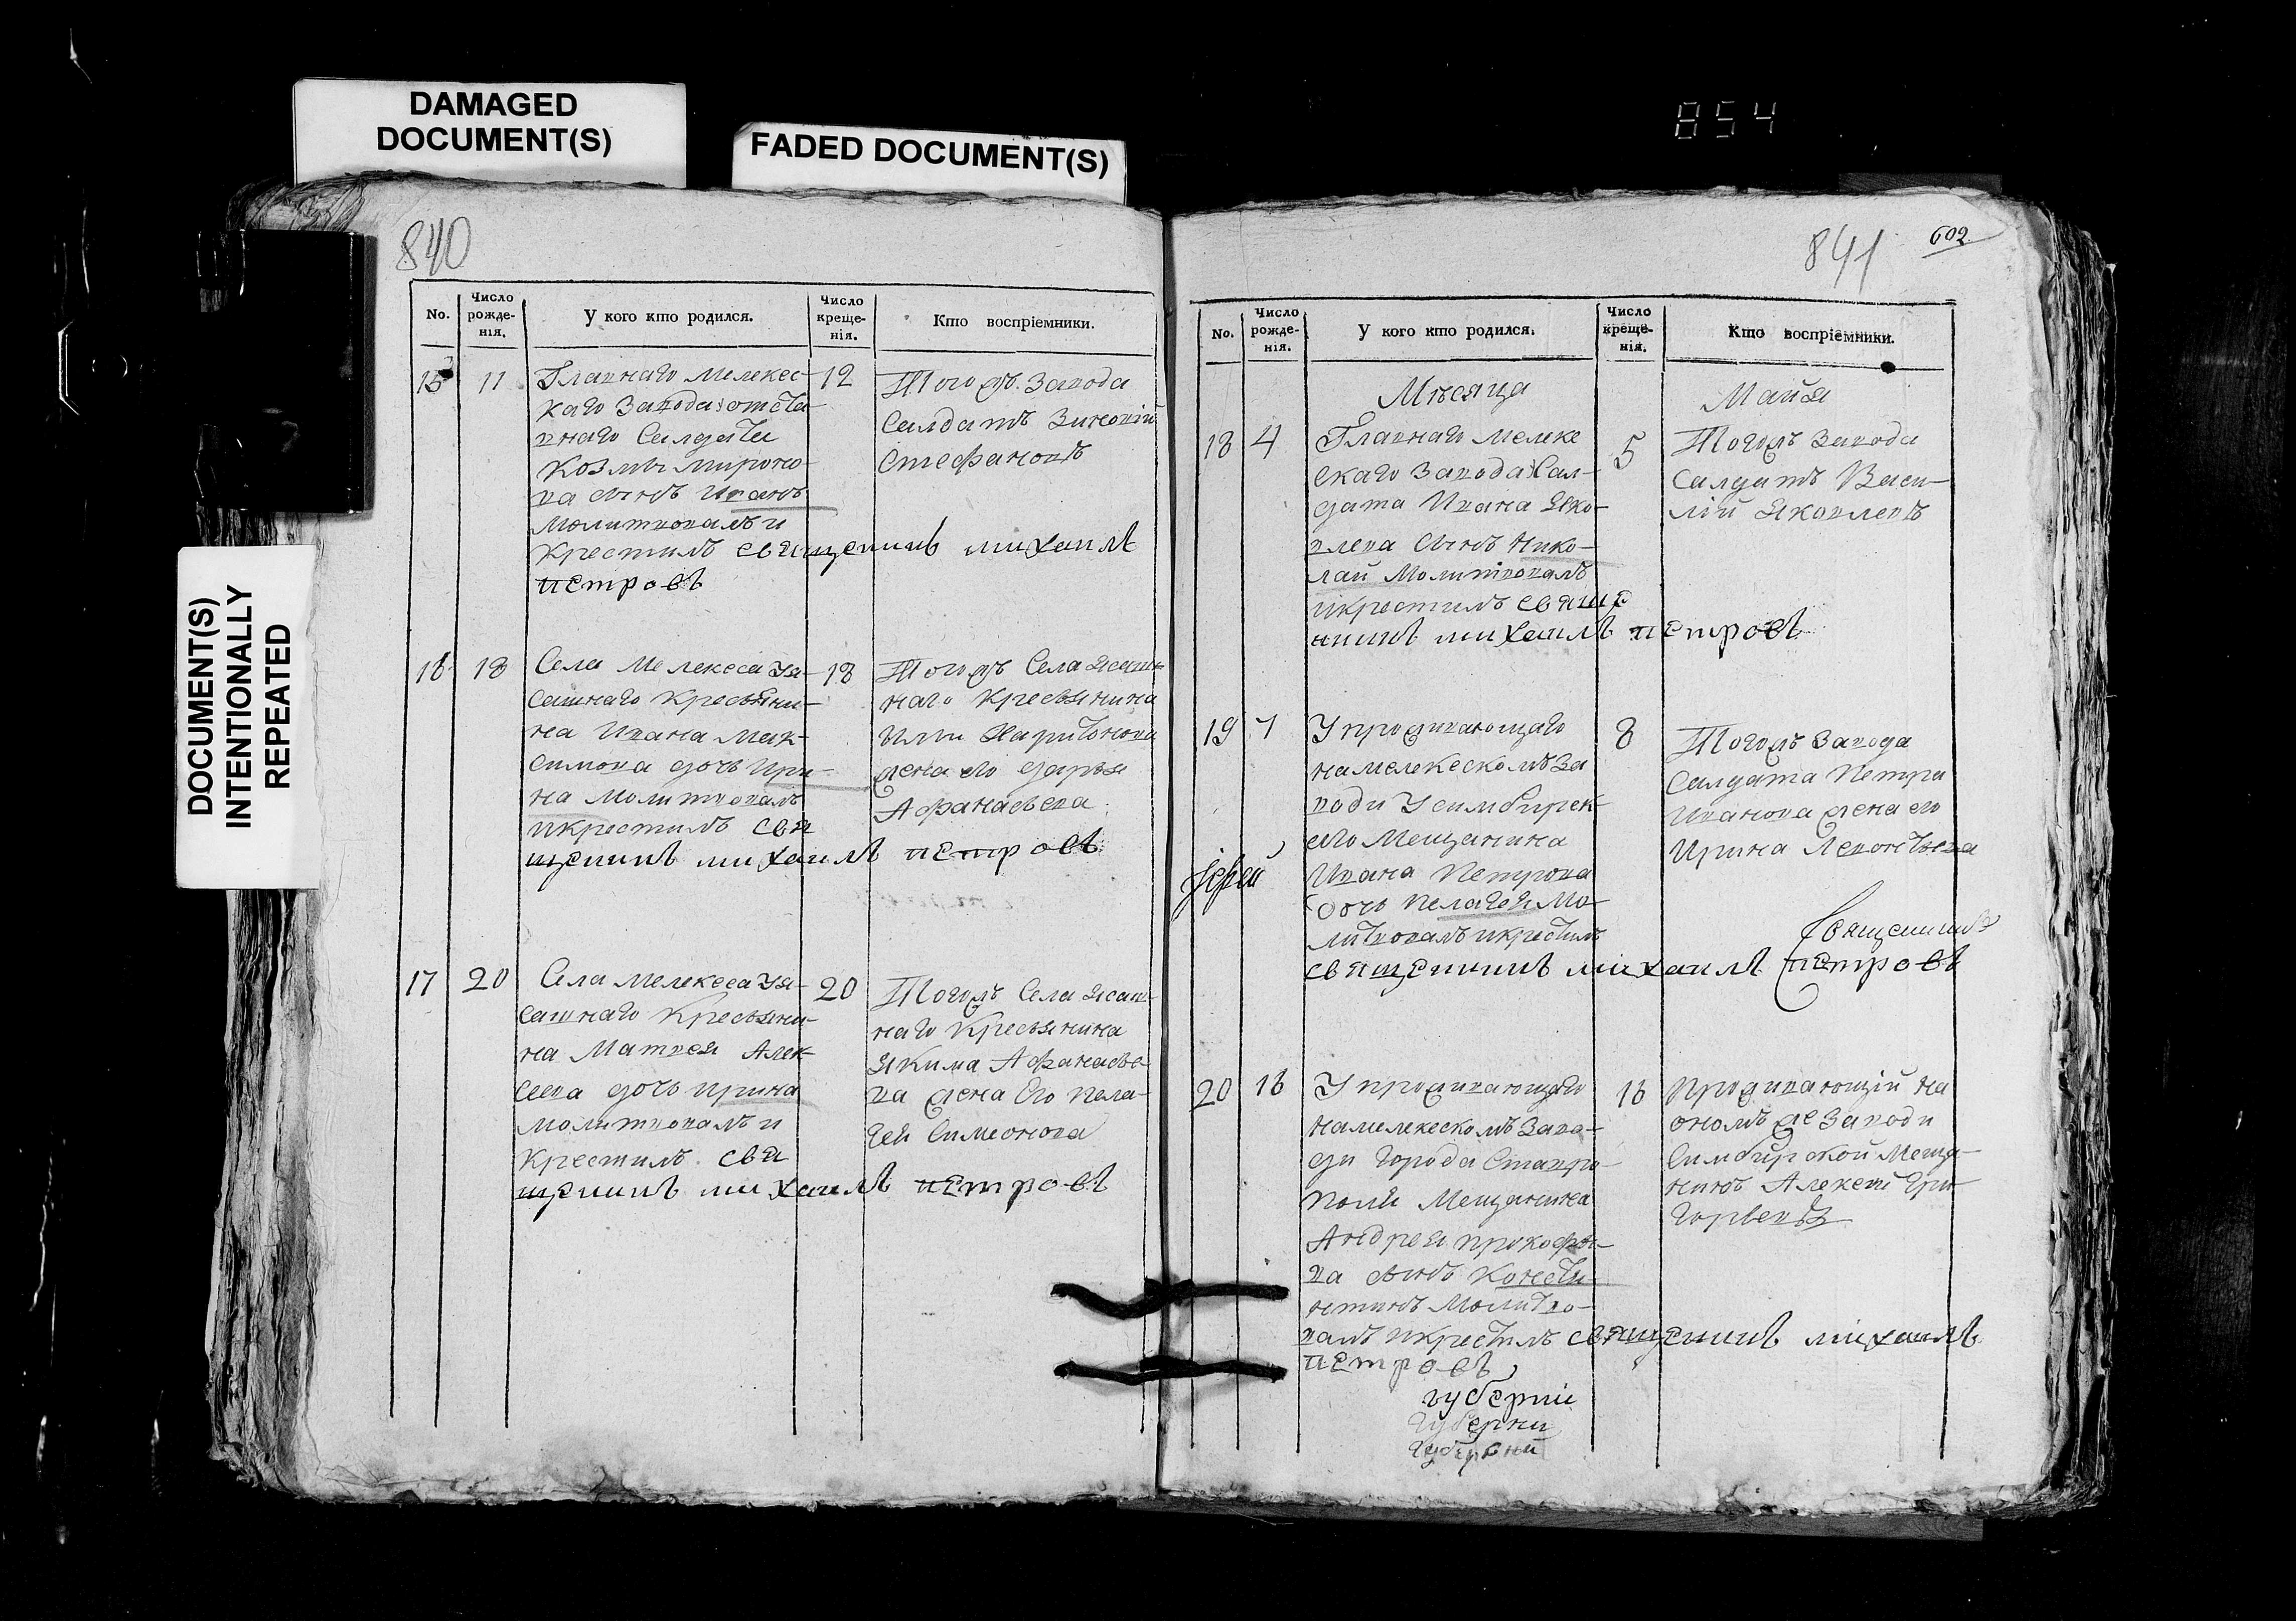 DAMAGED
DOCUMENT(S)
FADED DOCUMENT(S)
DOCUMENT(S)
INTENTIONALLY
REPEATED
854
840
No.
Число рожде-нія.
У кого кто родился.
Число креще-нія.
Кто воспріемники.
15
11
Главнаго Мелекес-
каго Завода отста-
внаго Салдата
Козмы Мироно-
ва сынъ Иванъ
Молитвовалъ и
Крестилъ священникъ михаилъ
петровъ
12
Тогожъ Завода
Салдатъ Зиновій
Стефановъ
16
18
Села Мелекеса Уя-
сашнаго Крестьяни-
на Ивана Мак-
симова дочь Ири-
на Молитвовалъ
икрестилъ свя
щенникъ михаилъ петровъ
18
Тогожъ Села Ясаш-
наго Крестьянина
Ильи Харитонова
жена его Дарья
Афанасьева
17
20
Села Мелекеса Уя-
сашнаго Крестьяни-
на Матвея Алек-
сеева дочь Ирина
Молитвовалъ и
Крестилъ свя
щенникъ михаилъ петровъ
20
Тогожъ Села Ясаш-
наго Крестьянина
Якима Афанасье-
ва жена Его Пела-
гея Симеонова
841
602
No.
Число рожде-нія.
У кого кто родился.
Число креще-нія.
Кто воспріемники.
Месяца
Майя
18
4
Главнаго Мелеке
скаго Завода Сал-
дата Ивана Яко-
влева сынъ Нико-
лай Молитвовалъ
икрестилъ свяще
нникъ михаилъ петровъ
5
Тогожъ Завода
Салдатъ Васи-
лій Яковлевъ
19
7
У проживающаго
намелекескомъ За
води Усимбирск-
его Мещанина
Ивана Петрова
Дочь Пелагея Мо-
литвовалъ икрестилъ
священникъ михаилъ петровъ
8
Тогожъ Завода
Салдата Петра
Иванова жена его
Ирина Левонтьева
Іерей
Священникъ
20
16
У проживающаго
намелекескомъ Заво-
ди Города Ставро-
поля Мещанина
Андрея Прокофье-
ва сынъ Конста-
нтинъ Молитво-
валъ икрестилъ священникъ михаилъ
петровъ
16
Проживающій на
ономъ же Заводи
Симбирской Меща-
нинъ Алексей Гри-
горьевъ
губерніи
Губерни
Губерни